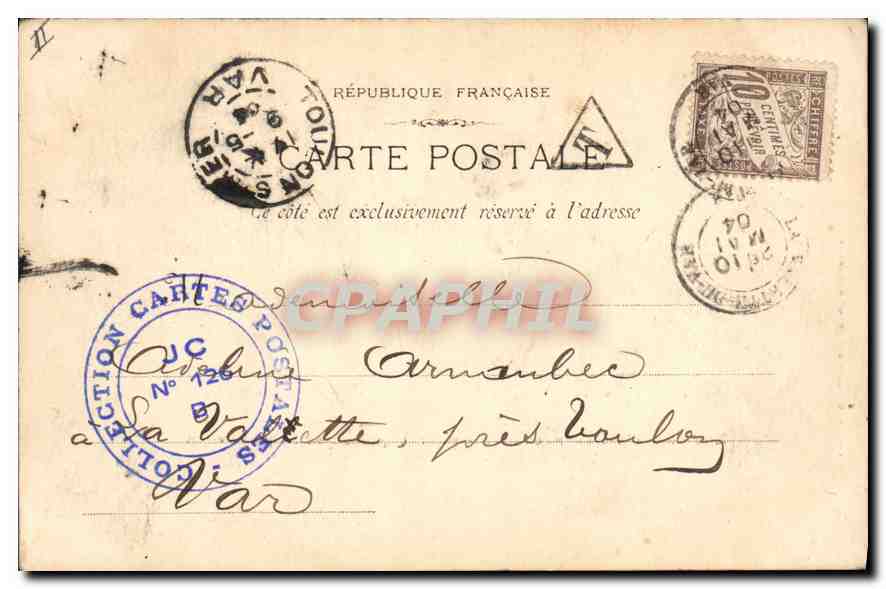 II
RÉPUBLIQUE FRANÇAISE
CARTE POSTALE
Ce côté est exclusivement réservé à l'adresse
T
TOULON S MER
VAR
CHIFFRE
POSTES
10 CENTIMES
A PERCEVOIR
10
MAI
04
Mademoiselle
CPAPHIL
COLLECTION CARTES POSTALES
JC
N° 126
B
à La Valette, près Toulon
Var